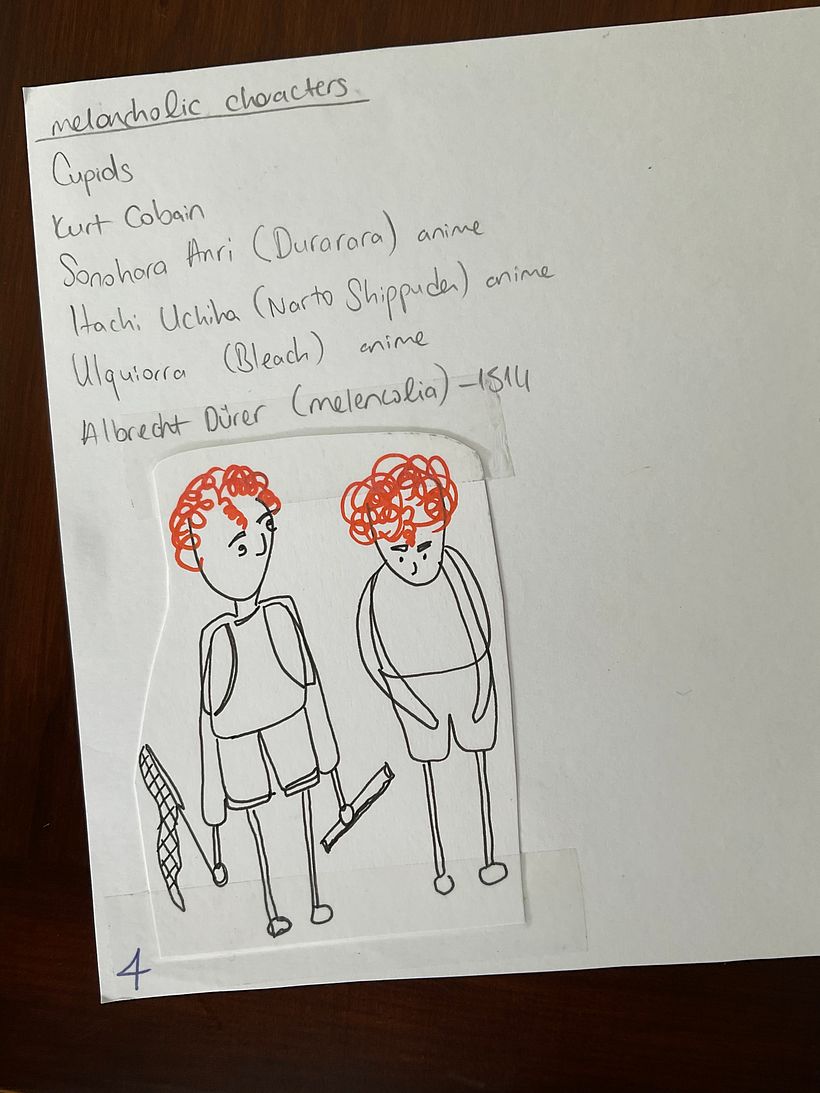 melancholic characters
Cupids
Kurt Cobain
Sonohara Anri (Durarara) anime
Itachi Uchiha (Narto Shippuden) anime
Ulquiorra (Bleach) anime
Albrecht Dürer (melencolia) - 1514
4